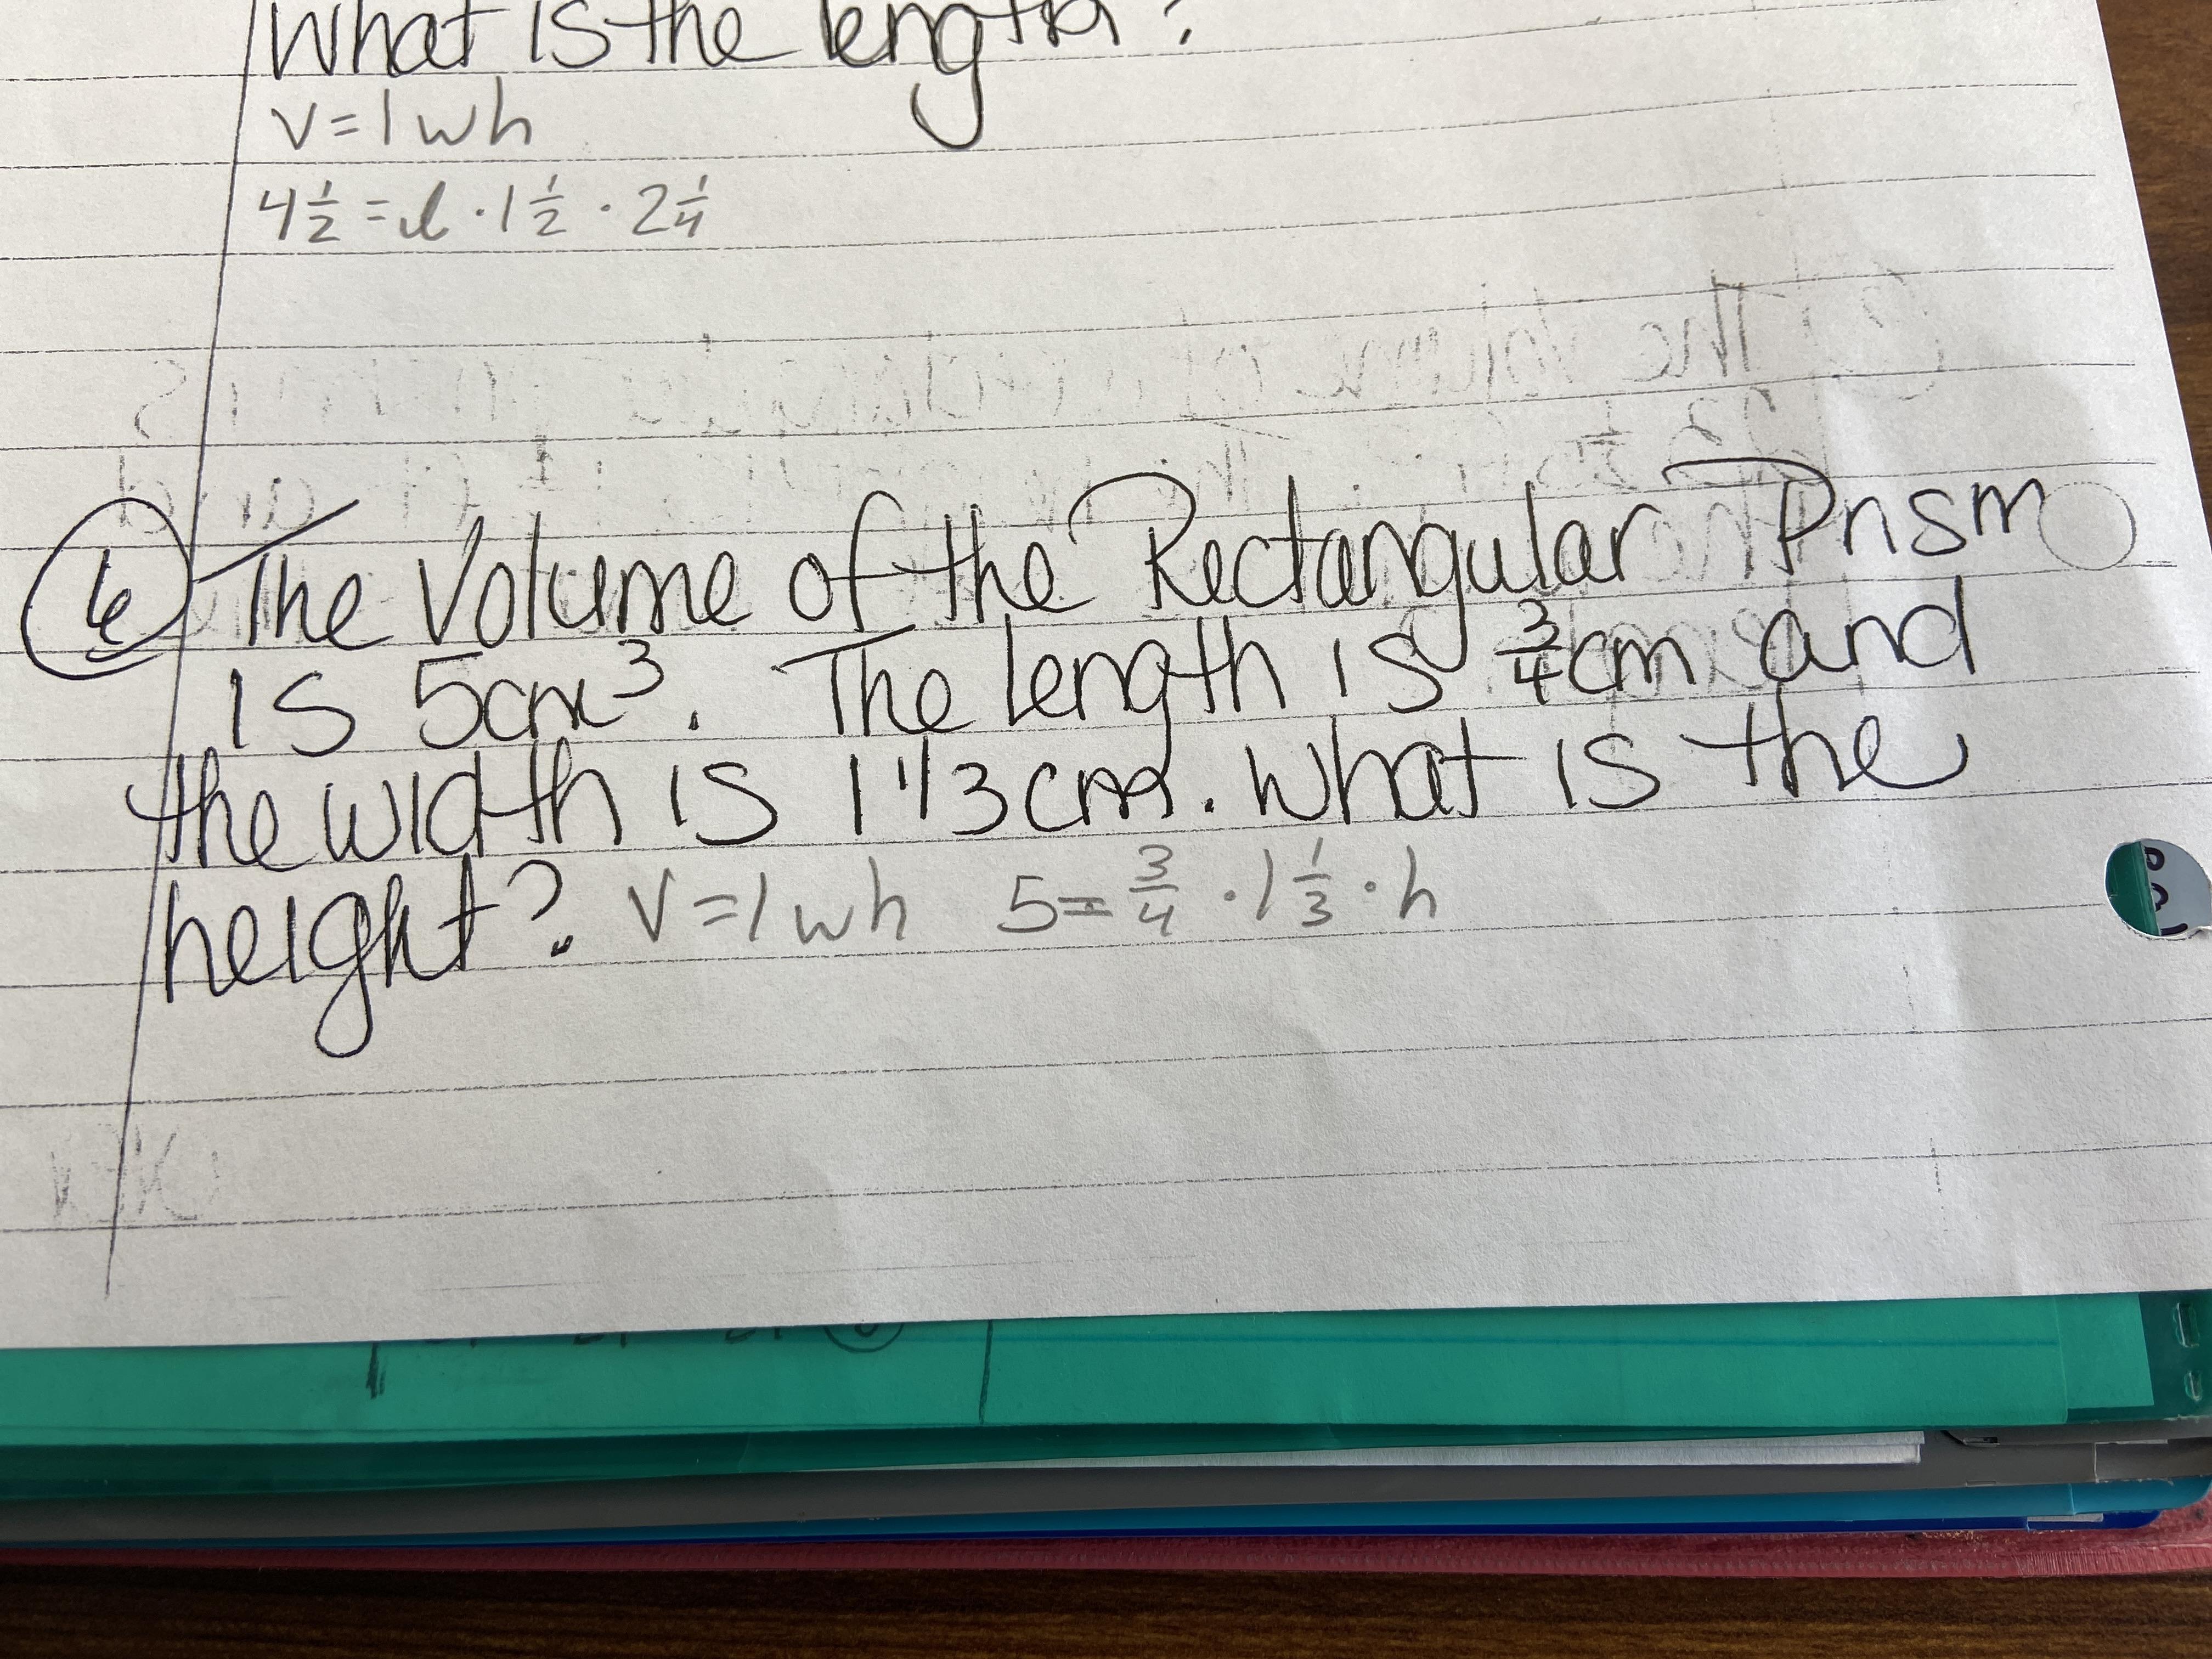 What is the length?
V = l w h
4 1/2 = l · 1 1/2 · 2 1/4
6 The Volume of the Rectangular Prism
is 5cm³. The length is 3/4 cm and
the width is 1 1/3 cm. What is the
height? V = l w h 5 = 3/4 · 1 1/3 · h